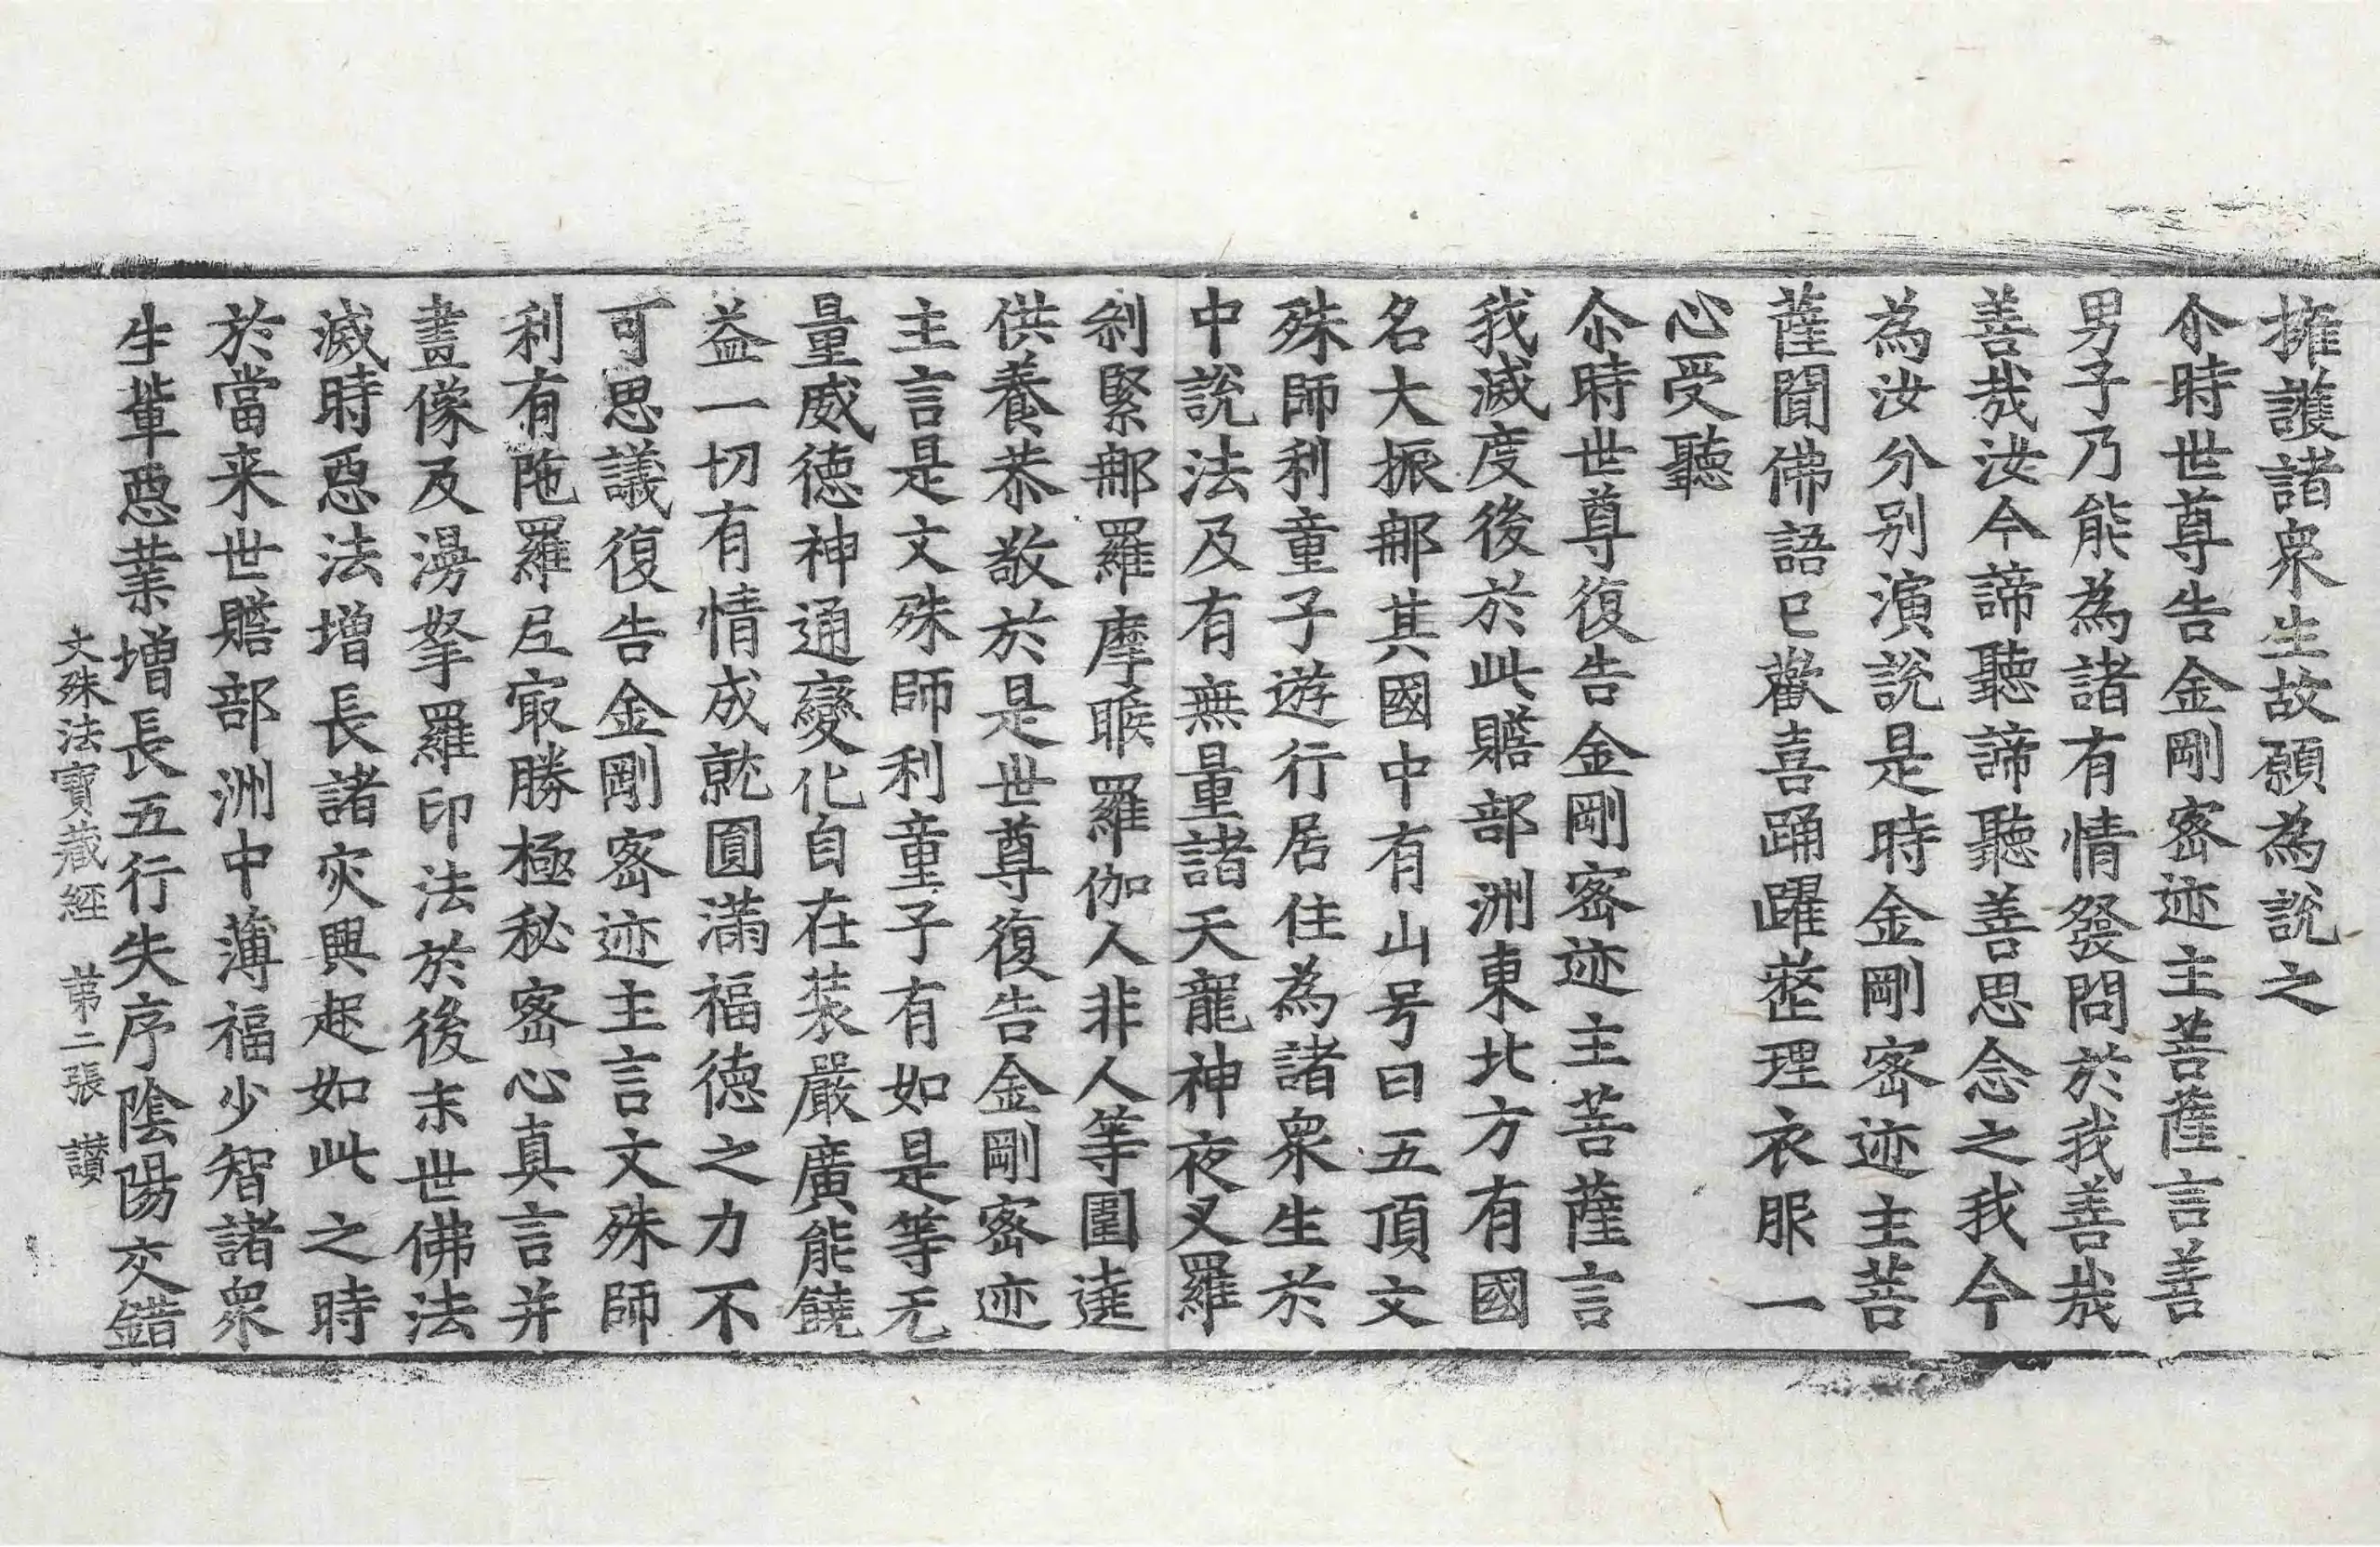 擁護諸衆生故願爲說之
尒時世尊告金剛密迹主菩薩言善
男子乃能爲諸有情發問於我善哉
善哉汝今諦聽諦聽善思念之我今
爲汝分别演說是時金剛密迹主菩
薩聞佛語已歡喜踊躍整理衣服一
心受聽
尒時世尊復告金剛密迹主菩薩言
我滅度後於此贍部洲東北方有國
名大振那其國中有山号曰五頂文
殊師利童子遊行居住爲諸衆生於
中說法及有無量諸天龍神夜叉羅
剎緊那羅摩睺羅伽人非人等圍遶
供養恭敬於是世尊復告金剛密迹
主言是文殊師利童子有如是等无
量威德神通變化自在装嚴廣能饒
益一切有情成就圓滿福德之力不
可思議復告金剛密迹主言文殊師
利有陁羅尼冣勝極秘密心真言并
畫像及湯拏羅印法於後末世佛法
滅時惡法增長諸灾興起如此之時
於當来世贍部洲中薄福少智諸衆
生輩惡業增長五行失序陰陽交錯
文殊法寶藏經 第二張 讃